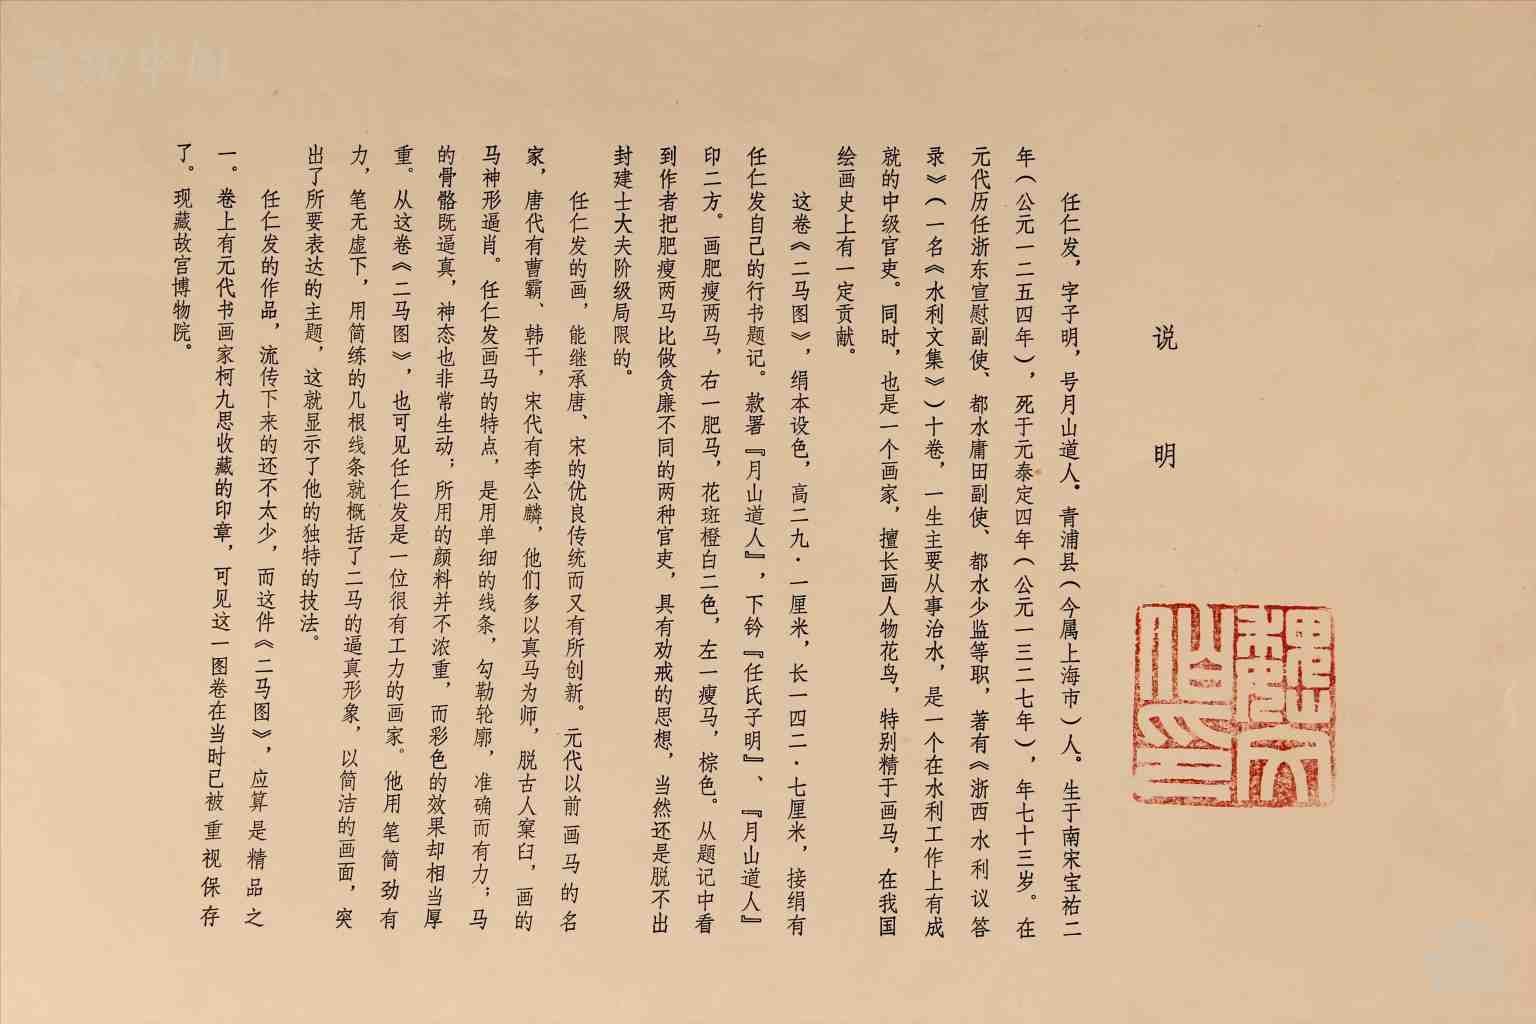 说明
任仁发，字子明，号月山道人。青浦县（今属上海市）人。生于南宋宝祐二
年（公元一二五四年），死于元泰定四年（公元一三二七年），年七十三岁。在
元代历任浙东宣慰副使、都水庸田副使、都水少监等职，著有《浙西水利议答
录》（一名《水利文集》）十卷，一生主要从事治水，是一个在水利工作上有成
就的中级官吏。同时，也是一个画家，擅长画人物花鸟，特别精于画马，在我国
绘画史上有一定贡献。
这卷《二马图》，绢本设色，高二九·一厘米，长一四二·七厘米，接绢有
任仁发自己的行书题记。款署『月山道人』，下钤『任氏子明』、『月山道人』
印二方。画肥瘦两马，右一肥马，花斑橙白二色，左一瘦马，棕色。从题记中看
到作者把肥瘦两马比做贪廉不同的两种官吏，具有劝戒的思想，当然还是脱不出
封建士大夫阶级局限的。
任仁发的画，能继承唐、宋的优良传统而又有所创新。元代以前画马的名
家，唐代有曹霸、韩干，宋代有李公麟，他们多以真马为师，脱古人窠臼，画的
马神形逼肖。任仁发画马的特点，是用单细的线条，勾勒轮廓，准确而有力；马
的骨骼既逼真，神态也非常生动；所用的颜料并不浓重，而彩色的效果却相当厚
重。从这卷《二马图》，也可见任仁发是一位很有工力的画家。他用笔简劲有
力，笔无虚下，用简练的几根线条就概括了二马的逼真形象，以简洁的画面，突
出了所要表达的主题，这就显示了他的独特的技法。
任仁发的作品，流传下来的还不太少，而这件《二马图》，应算是精品之
一。卷上有元代书画家柯九思收藏的印章，可见这一图卷在当时已被重视保存
了。现藏故宫博物院。